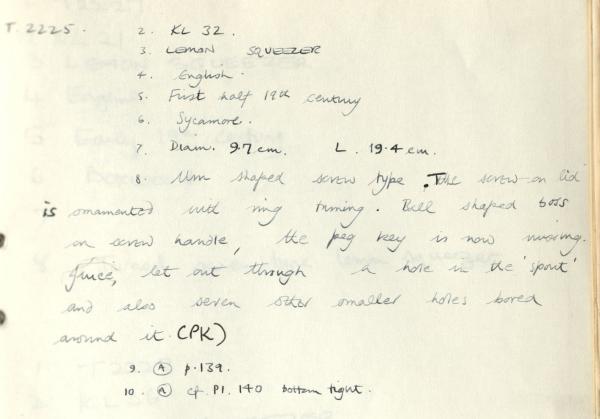 T. 2225. 2. KL 32.
3. LEMON SQUEEZER
4. English.
5. First half 19th century
6. Sycamore.
7. Diam. 9.7 cm. L. 19.4 cm.
8. Urn shaped screw type. The screw-on lid
is ornamented with ring turning. Bell shaped boss
on screw handle, the peg key is now missing.
Juice, let out through a hole in the 'spout'
and also seven other smaller holes bored
around it. (PK)
9. (A) p. 139.
10. (A) cf. Pl. 140 bottom right.